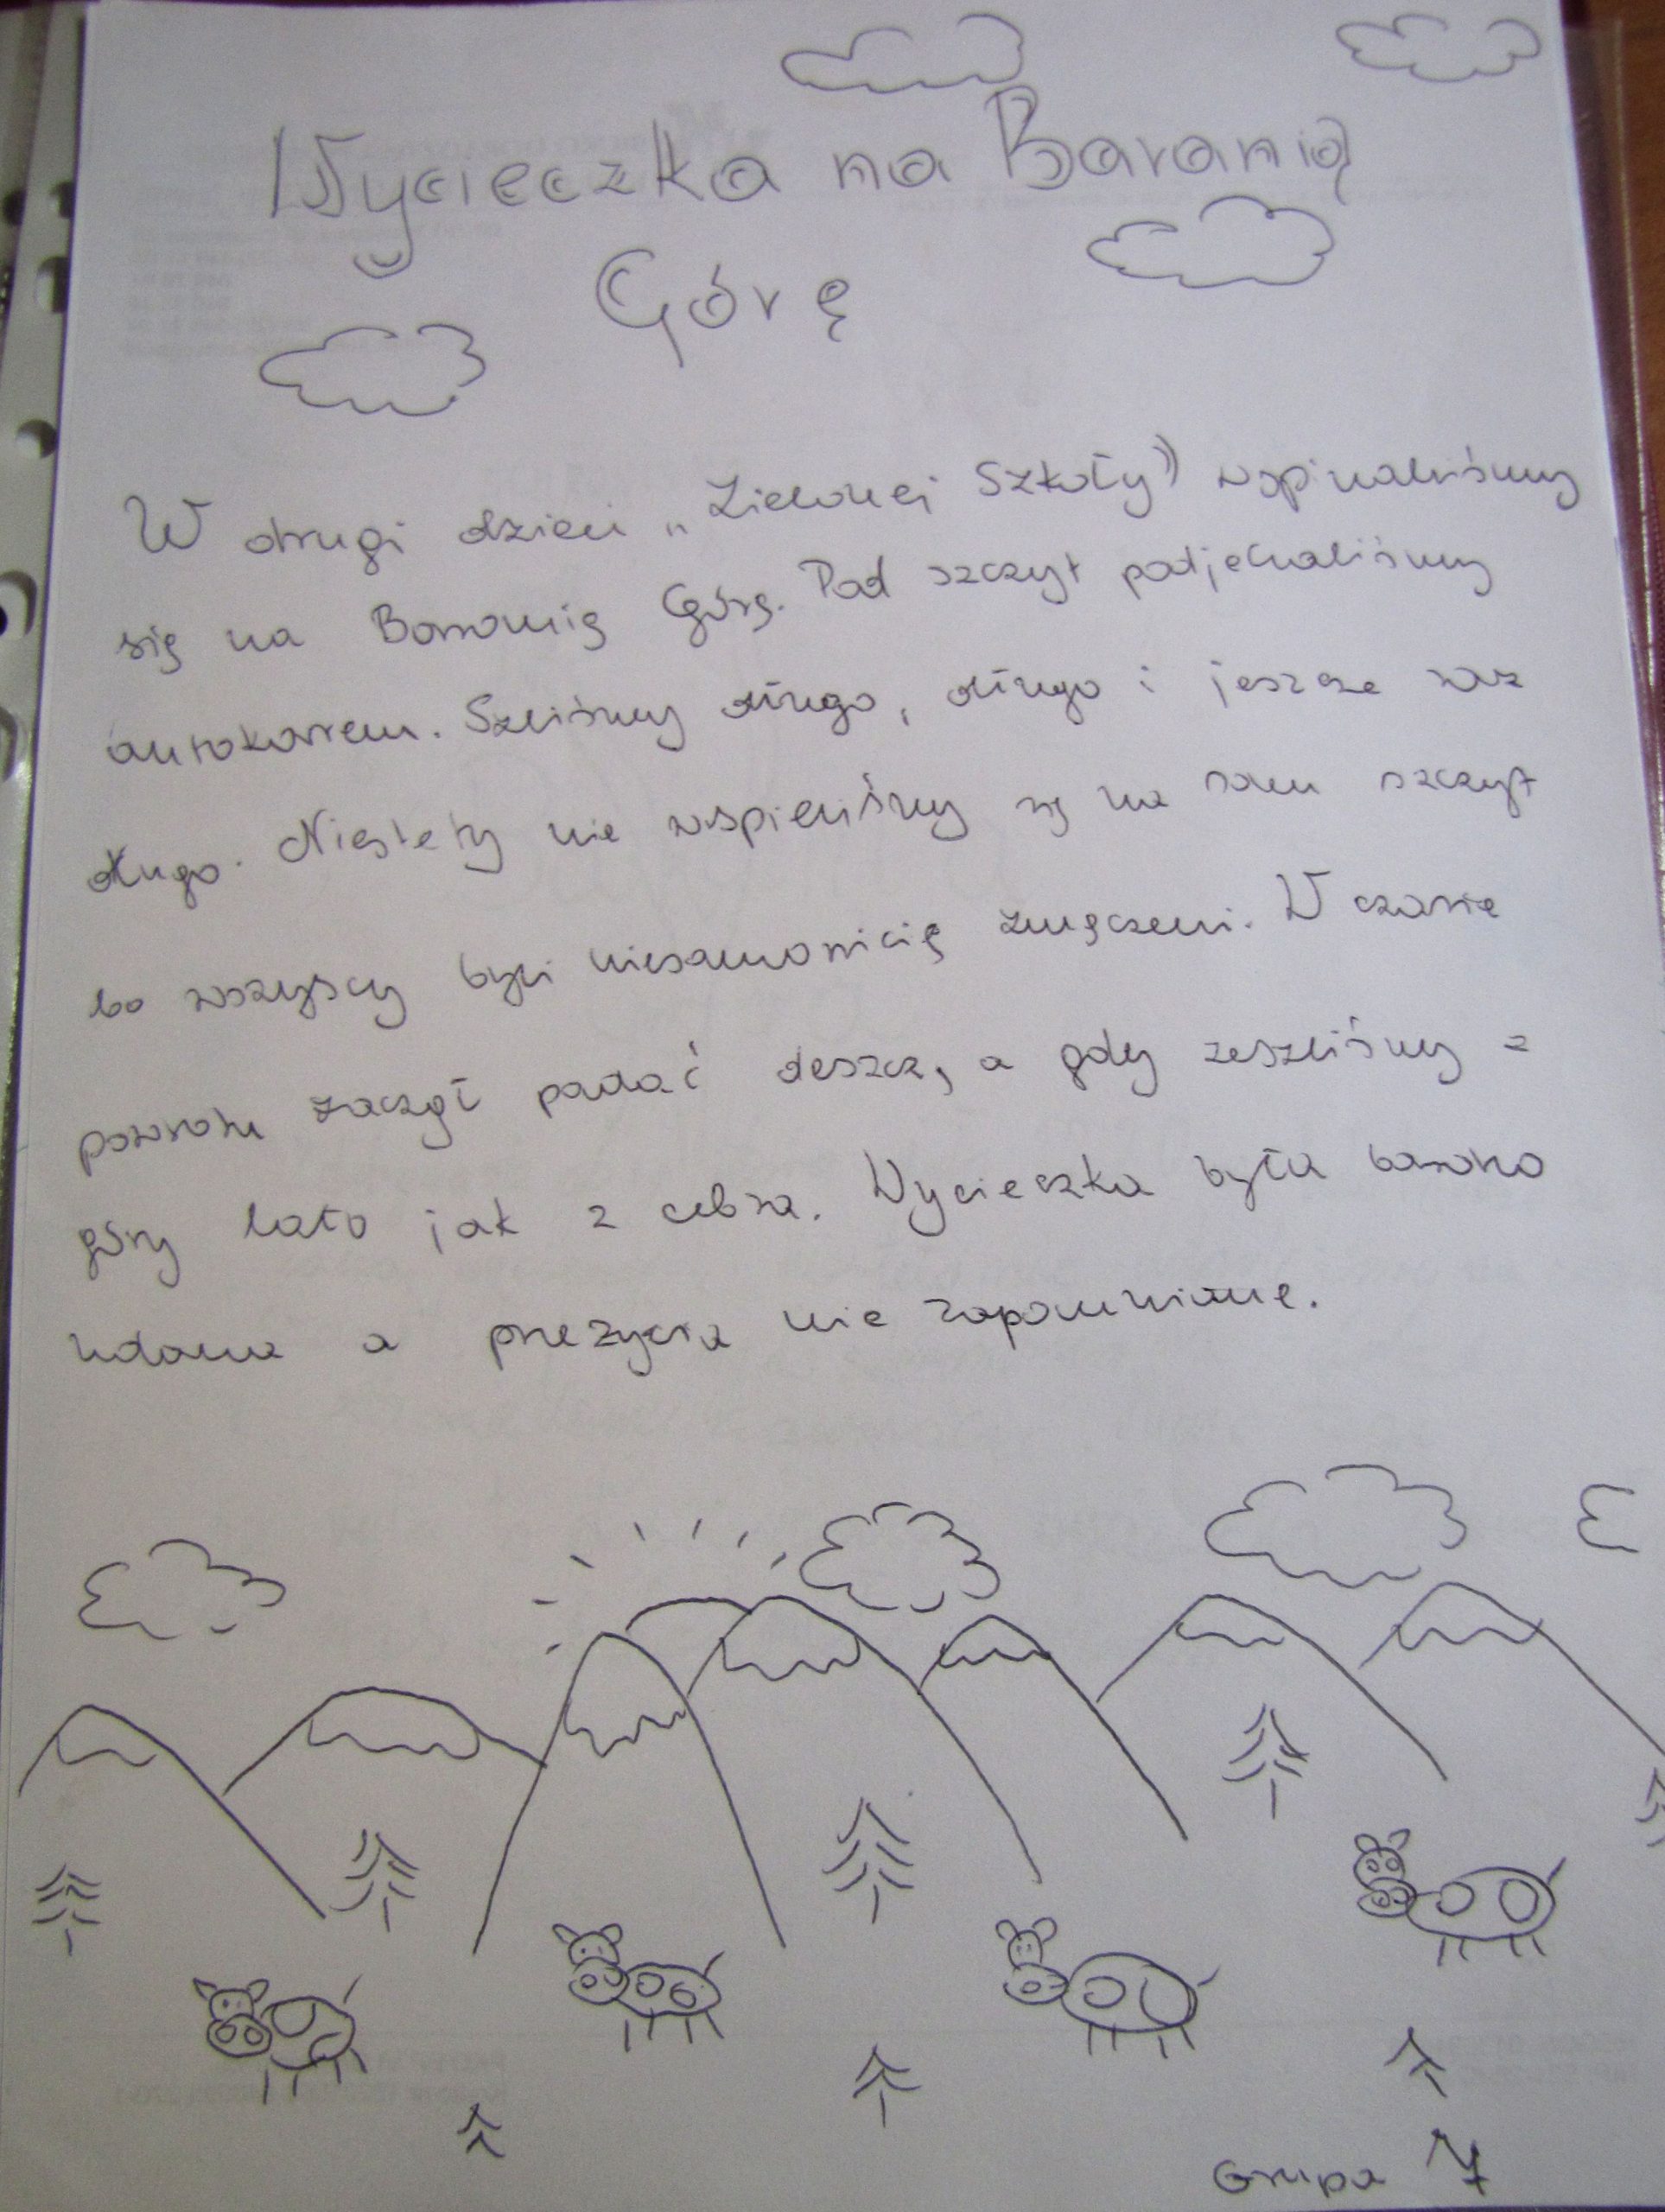 Wycieczka na Baranią
Górę
W drugi dzień „Zielonej Szkoły” wspinaliśmy
się na Baranią Górę. Pod szczyt podjechaliśmy
autokarem. Szliśmy długo, długo i jeszcze raz
długo. Niestety nie wspieliśmy się na sam szczyt
bo wszyscy byli niesamowicię zmęczeni. W czasie
powrotu zaczął padać deszcz, a gdy zeszliśmy z
góry lało jak z cebra. Wycieczka była bardzo
udana a przeżycia nie zapomniane.
Grupa 7